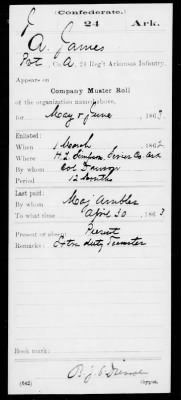 (Confederate.)
J 24 Ark.
A. James
Pvt, Co. A, 24 Reg't Arkansas Infantry.
Appears on
Company Muster Roll
of the organization named above,
for May & June, 1863.
Enlisted:
When 1 March, 1862
Where
By whom Col
Period 12 Months
Last paid:
By whom Maj
To what time April 30, 1863
Present or absent Present
Remarks: Extra duty Teamster
Book mark:
(642) Copyist.